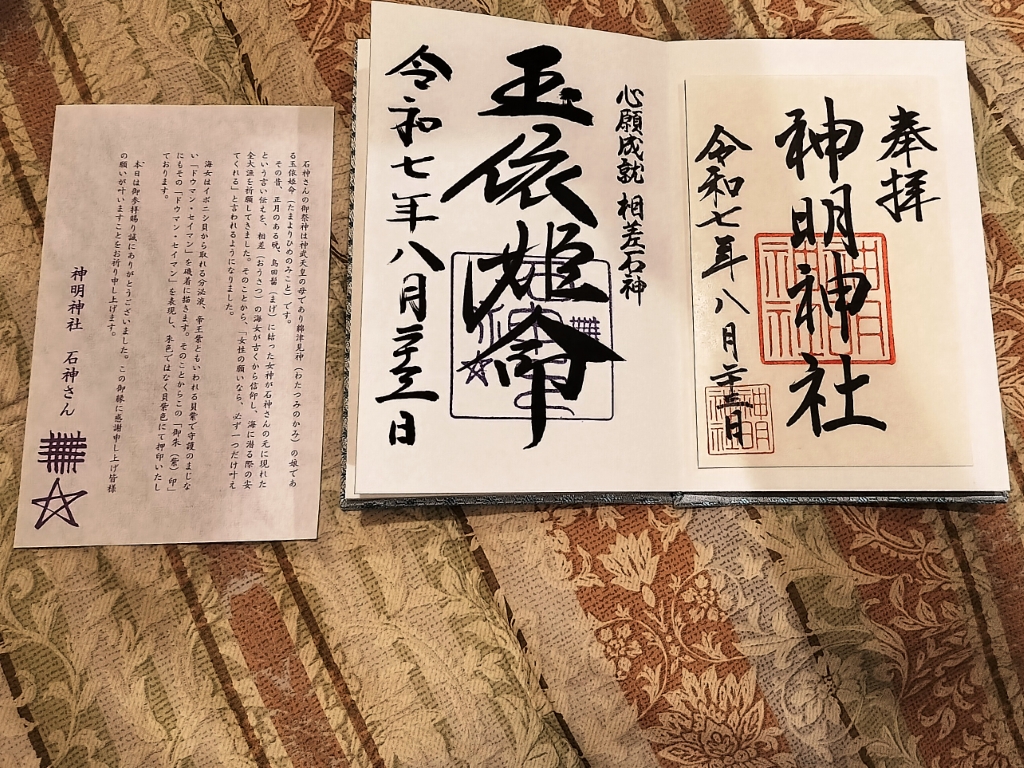 奉拝
神明神社
令和七年八月二十三日
心願成就 相差石神
玉依姫命
令和七年八月二十三日
石神さんの御祭神は神武天皇の母であり綿津見神（わたつみのかみ）の娘であ
る玉依姫命（たまよりひめのみこと）です。
その昔、正月のある晩、島田髷（まげ）に結った女神が石神さんの元に現れた
という言い伝えを、相差（おうさつ）の海女が古くから信仰し、海に潜る際の安
全大漁を祈願してきました。そのことから、「女性の願いなら、必ず一つだけ叶え
てくれる」と言われるようになりました。
海女はイボニシ貝から取れる分泌液、帝王紫ともいわれる貝紫で守護のまじな
い「ドウマン・セイマン」を磯着に描きます。そのことからこの「御朱（紫）印」
にもその「ドウマン・セイマン」を表現し、朱色ではなく貝紫色にて押印いたし
ております。
本日は御参拝賜り誠にありがとうございました。この御縁に感謝申し上げ皆様
の願いが叶いますことをお祈り申し上げます。
神明神社 石神さん